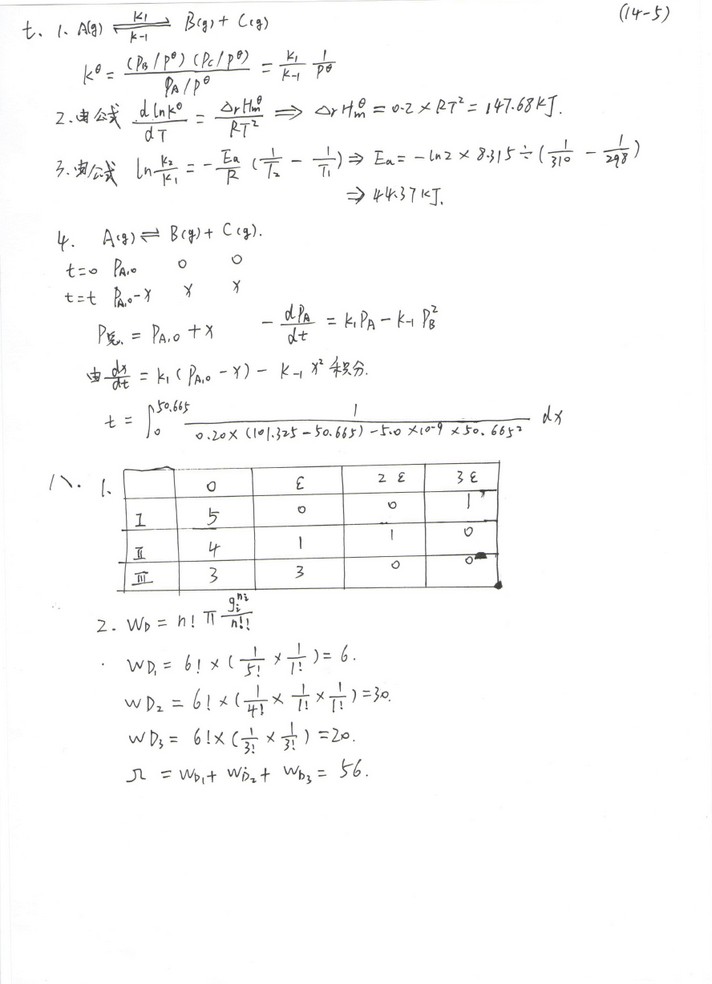 (14-5)
七. 1. A(g) ⇌ B(g) + C(g) K1 K-1
K^θ = (P_B/P^θ)(P_C/P^θ) / (P_A/P^θ) = K1/K-1 · 1/P^θ
2. 由公式 dlnK^θ/dT = ΔrHm^θ/RT² ⇒ ΔrHm^θ = 0.2 × RT² = 147.68KJ.
3. 由公式 ln K2/K1 = - Ea/R (1/T2 - 1/T1) ⇒ Ea = - ln2 × 8.315 ÷ (1/310 - 1/298)
⇒ 44.37KJ.
4. A(g) ⇌ B(g) + C(g).
t=0 P_A,0 0 0
t=t P_A,0-x x x
P总. = P_A,0 + x - dP_A/dt = K1P_A - K-1P_B²
由 dx/dt = K1(P_A,0 - x) - K-1x² 积分.
t = ∫₀^50.665 1 / (0.20×(101.325-50.665)-5.0×10^-9×50.665²) dx
八. 1.
0 ε 2ε 3ε
I 5 0 0 1
II 4 1 1 0
III 3 3 0 0
2. W_D = n! π g_i^n_i / n_i!
W_D1 = 6! × (1/5! × 1/1!) = 6.
W_D2 = 6! × (1/4! × 1/1! × 1/1!) = 30.
W_D3 = 6! × (1/3! × 1/3!) = 20.
Ω = W_D1 + W_D2 + W_D3 = 56.